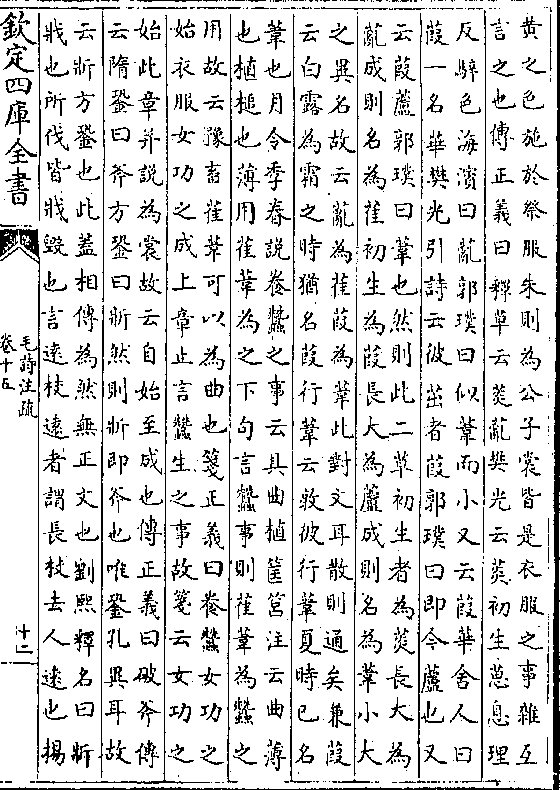 黄之色施於祭服朱則為公子裳皆是衣服之事雜互
言之也傳正義曰釋草云菼薍樊光云菼初生葸息理
反騂色海濱曰薍郭璞曰似葦而小又云葭華舍人曰
葭一名華樊光引詩云彼茁者葭郭璞曰即今蘆也又
云葭蘆郭璞曰葦也然則此二草初生者為菼長大為
薍成則名為萑初生為葭長大為蘆成則名為葦小大
之異名故云薍為萑葭為葦此對文耳散則通矣兼葭
云白露為霜之時猶名葭行葦云敦彼行葦夏時已名
葦也月令季春說養蠶之事云具曲植筐筥注云曲薄
也植槌也薄用萑葦為之下句言蠶事則萑葦為蠶之
用故云豫畜萑葦可以為曲也箋正義曰養蠶女功之
始衣服女功之成上章止言蠶生之事故箋云女功之
始此章并說為裳故云自始至成也傳正義曰破斧傳
云隋銎曰斧方銎曰斨然則斨即斧也唯銎孔異耳故
云斨方銎也此蓋相傳為然無正文也劉熙釋名曰斨
戕也所伐皆戕毀也言遠枝遠者謂長枝去人遠也揚
欽定四庫全書
毛詩注疏
卷十五
十二